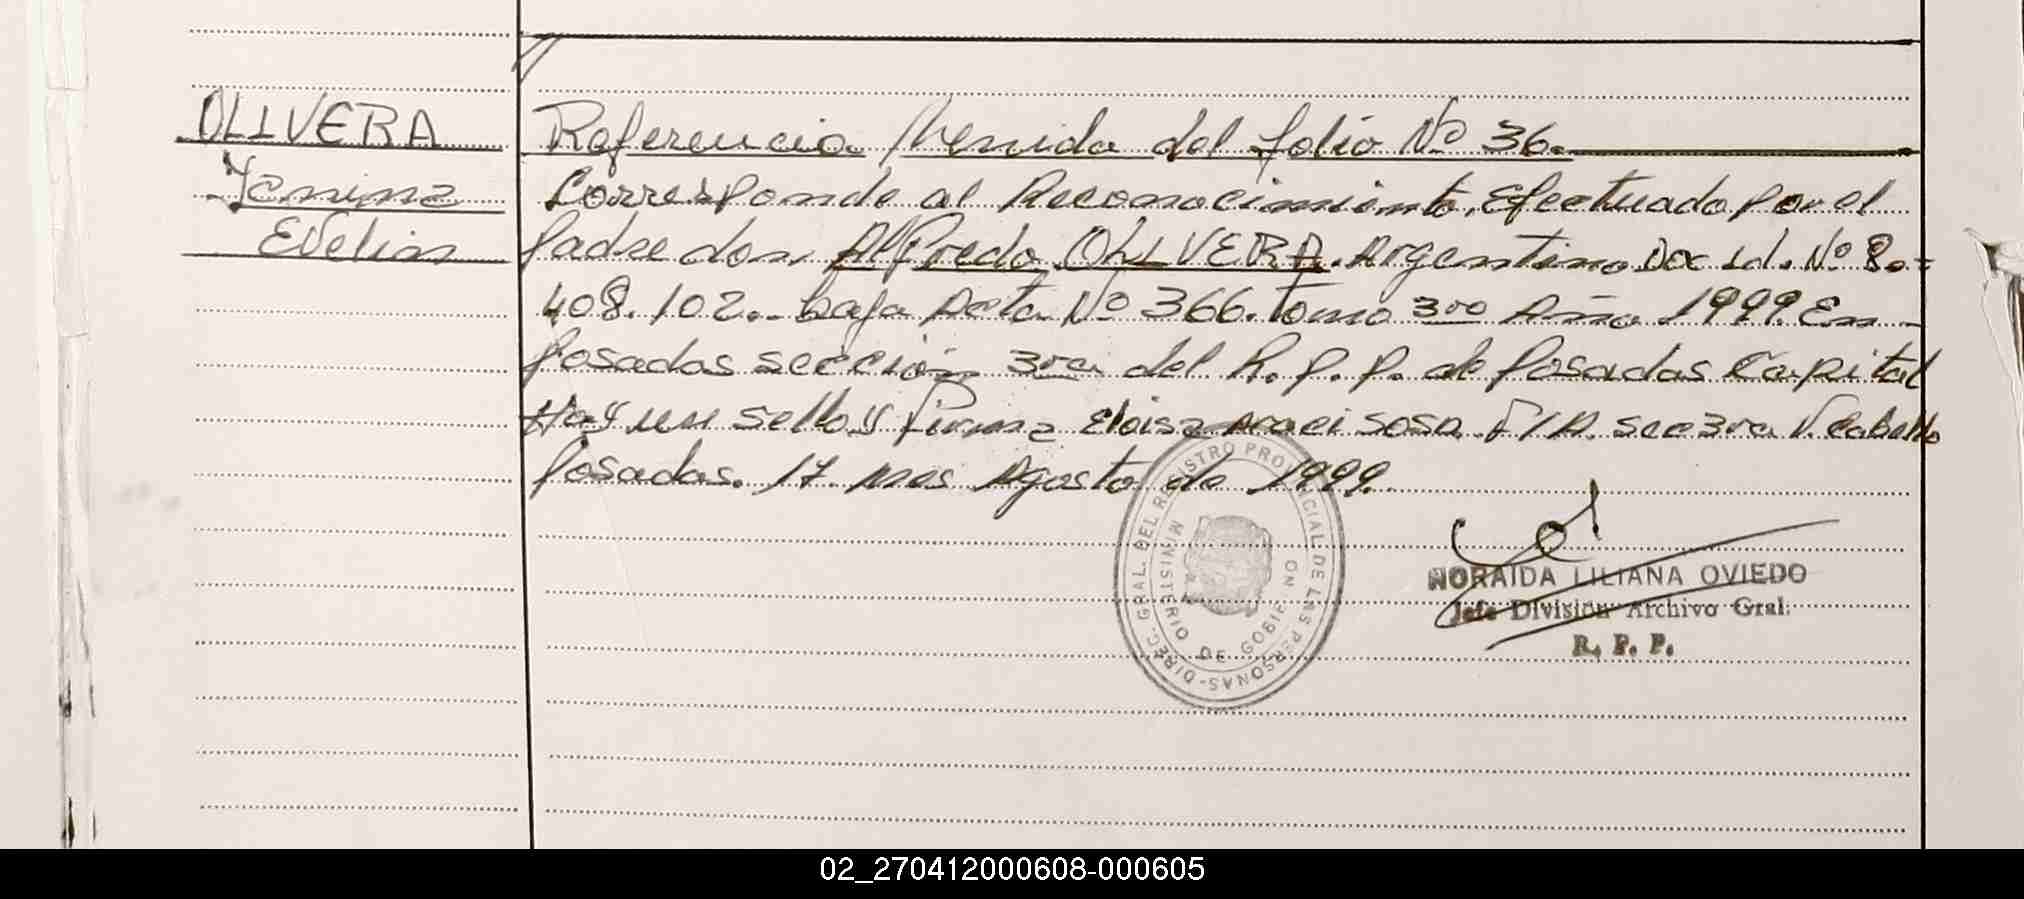 OLIVERA
Yanina
Evelin
Referencia Venida del folio Nº 36.
Corresponde al Reconocimiento, Efectuado por el
padre don, Alfredo OLIVERA. Argentino Doc Id. Nº 8.=
408.102.- baja Acta Nº 366. Tomo 3ro Año 1999. En
Posadas sección 3ra del R. P. P. de Posadas Capital
Hay un sello y Firma Eloisa Araci Sosa. F/A. sec 3ra V. Cabello
Posadas. 17 mes Agosto de 1999.
DIREC. GRAL. DEL REGISTRO PROVINCIAL DE LAS PERSONAS-
MINISTERIO DE GOBIERNO
NORAIDA LILIANA OVIEDO
Jefe División Archivo Gral.
R. P. P.
02_270412000608-000605